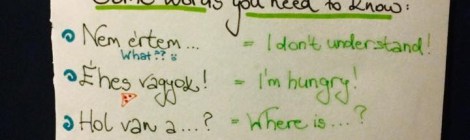 Some words you need to know:
Nem értem... = I don't understand!
What?? :)
Éhes vagyok! = I'm hungry!
Hol van a...? = Where is...?